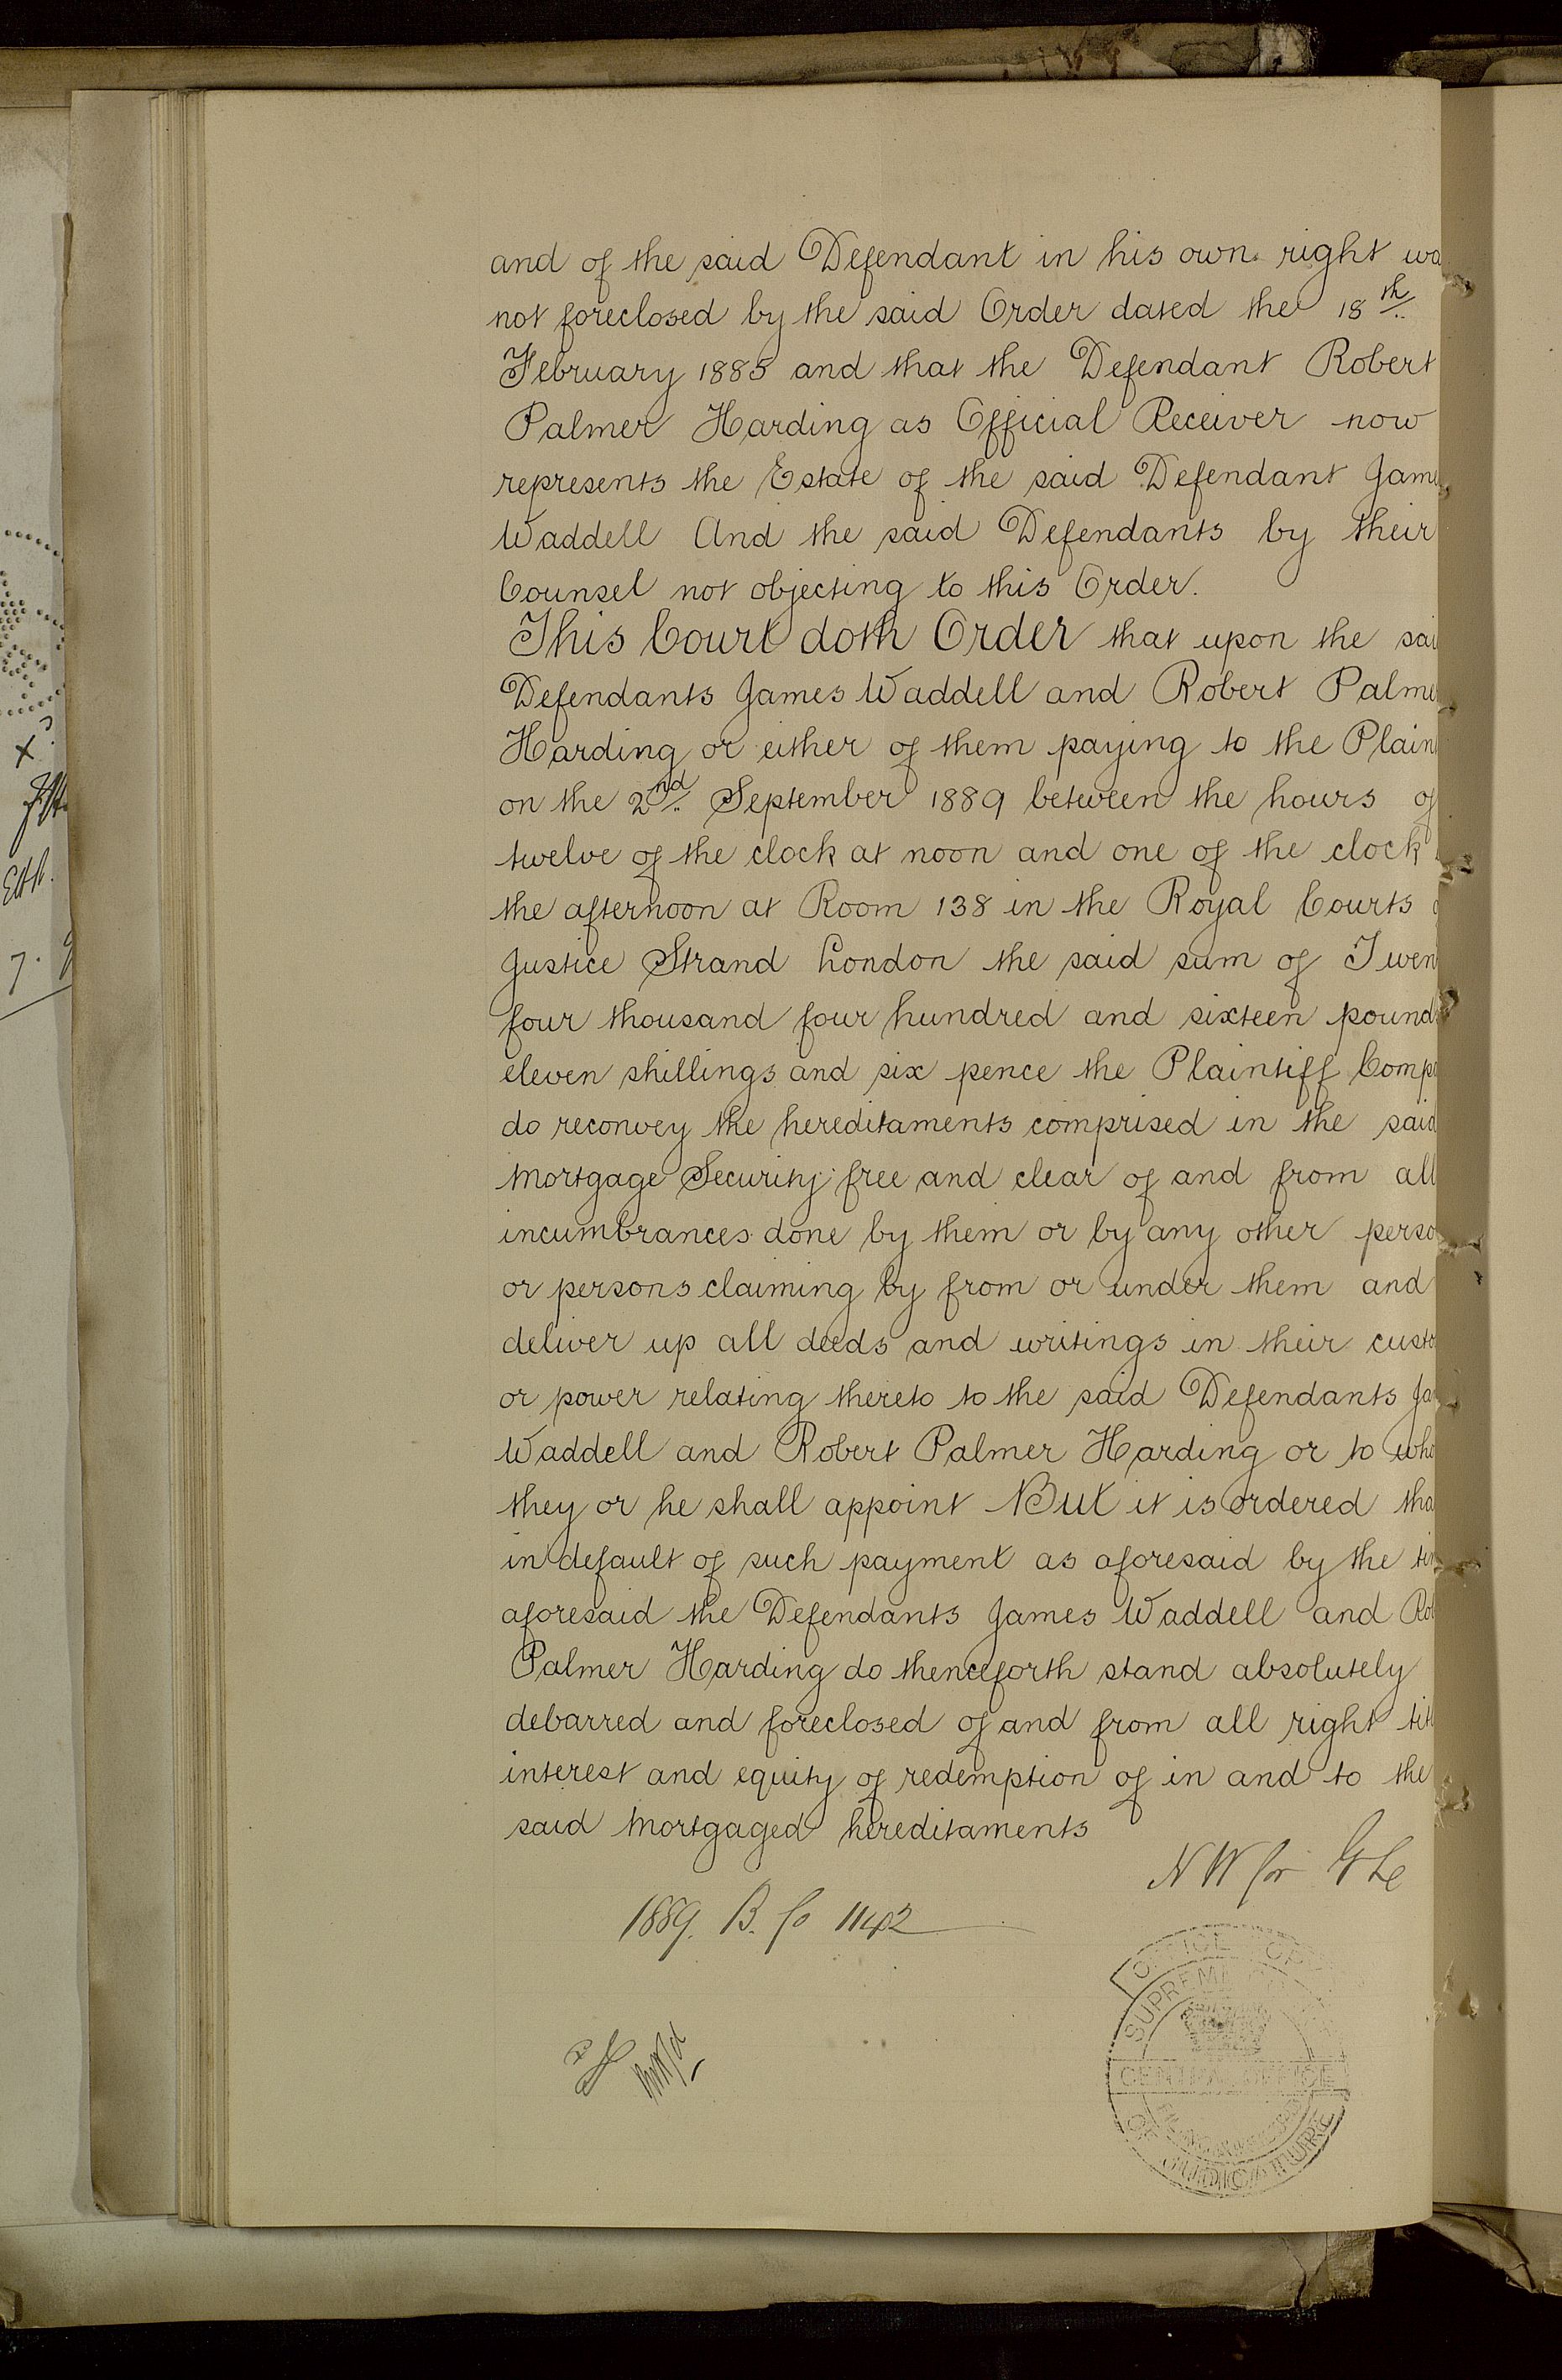 and of the said Defendant in his own right wa
not foreclosed by the said Order dated the 18th
February 1885 and that the Defendant Robert
Palmer Harding as Official Receiver now
represents the Estate of the said Defendant Jame
Waddell And the said Defendants by their
Counsel not objecting to this Order.
This Court doth Order that upon the sai
Defendants James Waddell and Robert Palme
Harding or either of them paying to the Plain
on the 2nd September 1889 between the hours of
twelve of the clock at noon and one of the clock
the afternoon at Room 138 in the Royal Courts
Justice Strand London the said sum of Twen
four thousand four hundred and sixteen pound
eleven shillings and six pence the Plaintiff Comp
do reconvey the hereditaments comprised in the said
Mortgage Security free and clear of and from all
incumbrances done by them or by any other perso
or persons claiming by from or under them and
deliver up all deeds and writings in their custo
or power relating thereto to the said Defendants Ja
Waddell and Robert Palmer Harding or to who
they or he shall appoint But it is ordered tha
in default of such payment as aforesaid by the ti
aforesaid the Defendants James Waddell and Ro
Palmer Harding do thenceforth stand absolutely
debarred and foreclosed of and from all right tit
interest and equity of redemption of in and to the
said Mortgaged hereditaments
1889. B. fo 1142
SUPREME
CENTRAL OFFICE
OF JUDICATURE